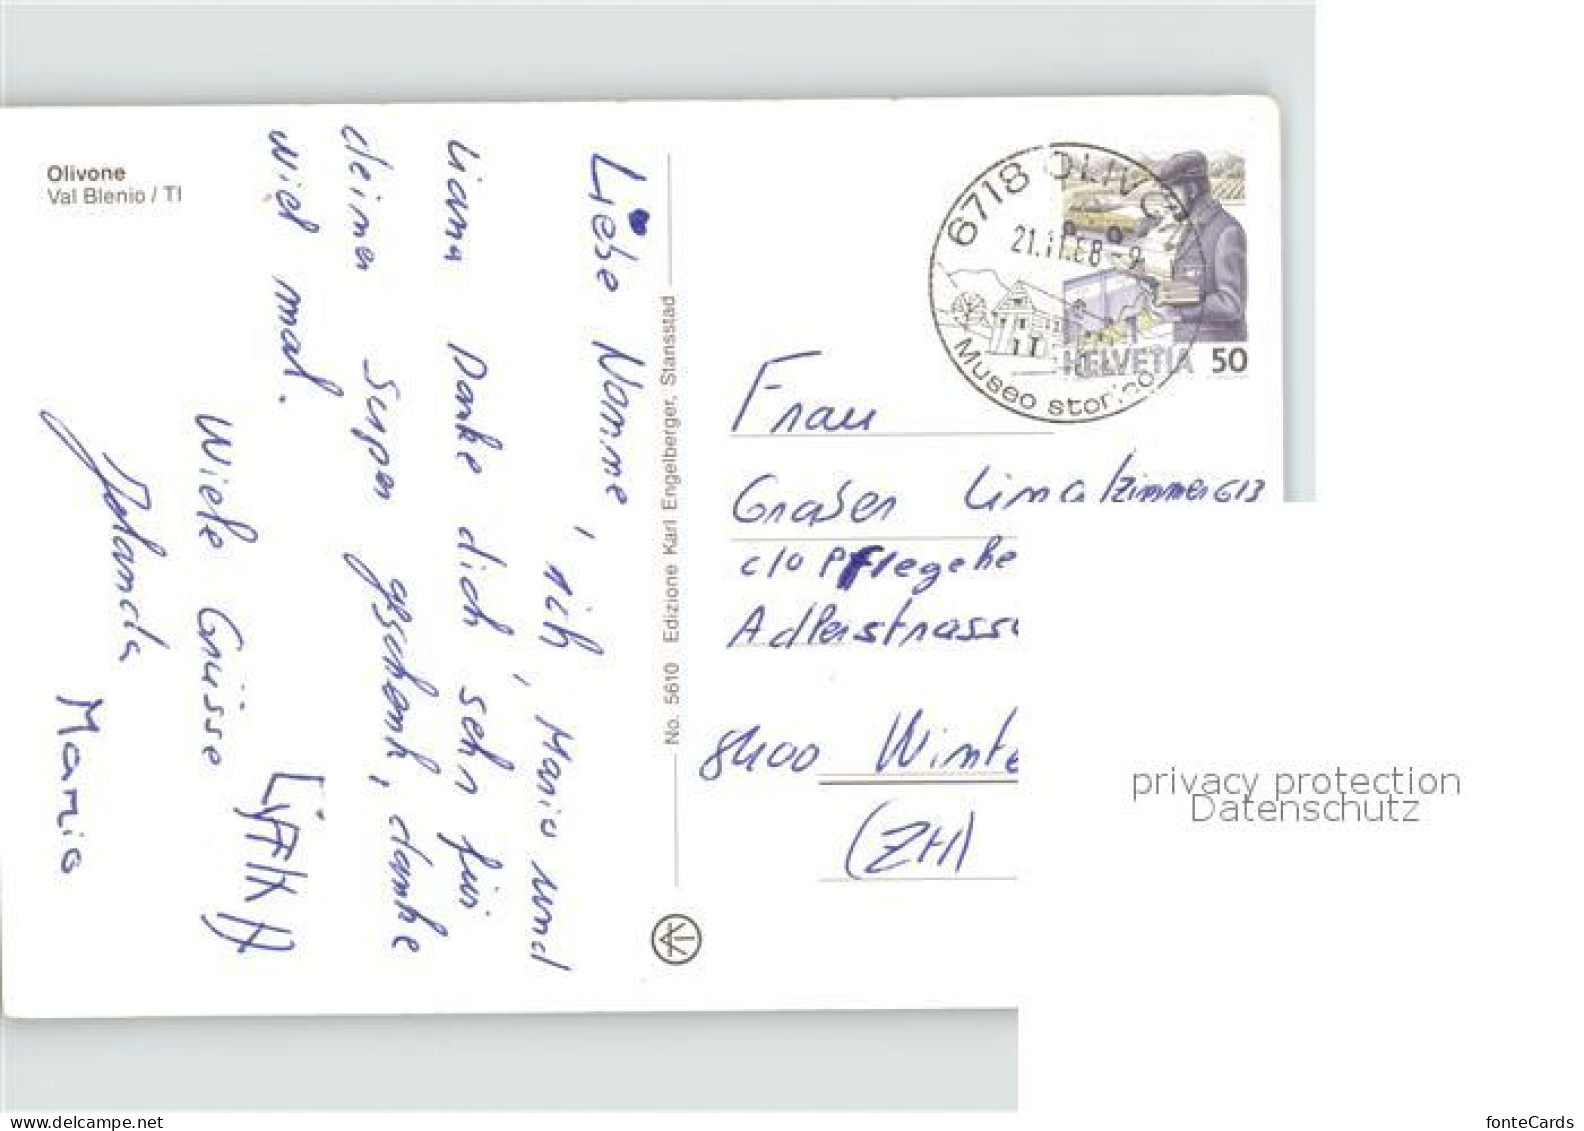 Olivone
Val Blenio / TI
Liebe Nomme,
ich, Mario und
Liana Danke dich sehr für
deinen Super geschenk, danke
viel mal.
Viele Grüsse
Jolanda
Mario
No. 5610 Edizione Karl Engelberger, Stansstad
6718 OLIVONE
21.11.88-9
Museo storico
HELVETIA 50
Frau
Graber Lina
Zimmer 613
c/o Pflegehe
Adlerstrasse
8400 Winte
(ZH)
privacy protection
Datenschutz
www.delcampe.net
fonteCards